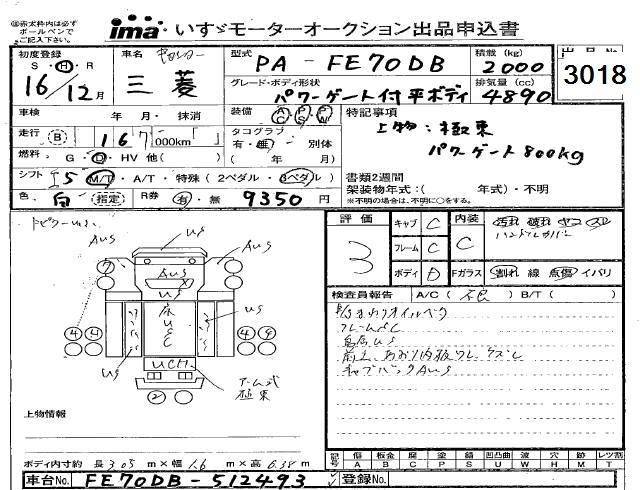 ㊟赤太枠内は必ず
ボールペンで
ご記入下さい。
ima いすゞモーターオークション出品申込書
初度登録 S・H・R 16/12月
車名 キャンター 三菱
型式 PA-FE70DB
積載(kg) 2000
出品No. 3018
グレード・ボディ形状 パワーゲート付平ボディ
排気量(cc) 4890
車検 年 月・抹消
装備 AC PS PW
特記事項
上物:極東
パワーゲート800kg
走行 B 167 000km
タコグラフ 有・無 別体
( 年 月)
燃料 G・D・HV 他( )
シフト I5 M/T・A/T・特殊(2ペダル・3ペダル)
書類2週間
架装物年式:( 年式)・不明
※不明の場合は、不明に○をする。
色 白 (指定) R券 有・無 9350円
トビラーus
評価 3
キャブ C
フレーム C
ボディ D
内装 C
Fガラス 割れ 線 点傷 イバリ
汚れ 破れ
AUS
us
AUS
7
AUS
us
床
us
C
us
us
4 4
4 9
UCH
2
アーム式
極東
検査員報告 A/C( 不良 ) B/T( )
オイルベタ
フレームSC
鳥居us
キャブバックAUS
上物情報
ボディ内寸約 長3.05m×幅1.6m×高6.38m
記号 傷A 板金B 腐C 塗P 錆S 凹凸曲U 波W 穴H ×M レツ割T
車台No. FE70DB-512493
登録No.